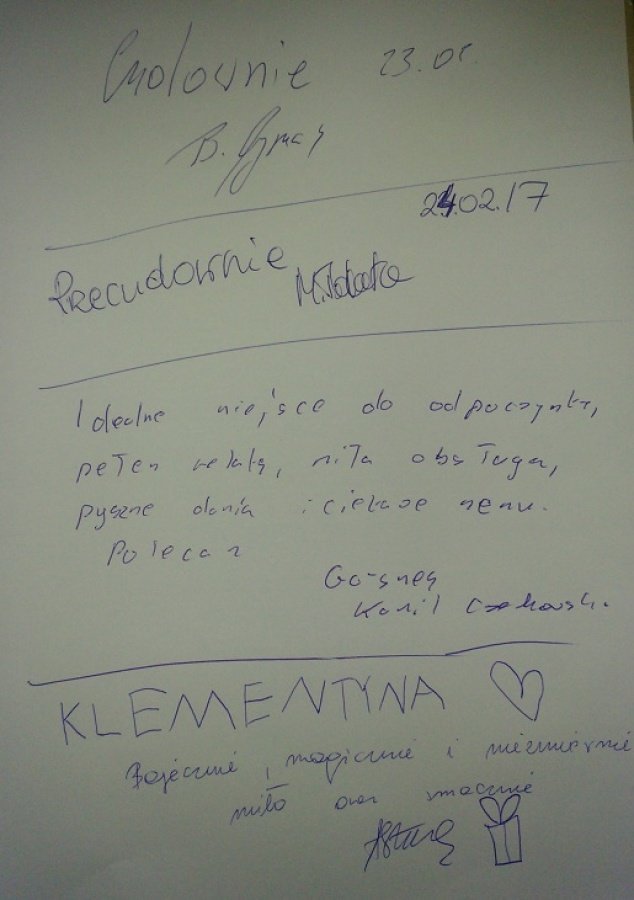 Cudownie 23.01.
B.
24.02.17
Przecudownie
Idealne miejsce do odpoczynku,
pełen relaks, miła obsługa,
pyszne dania i ciekawe menu.
Polecam
Kamil
KLEMENTYNA
Bajecznie, magicznie i niezmiernie
miło oraz smacznie